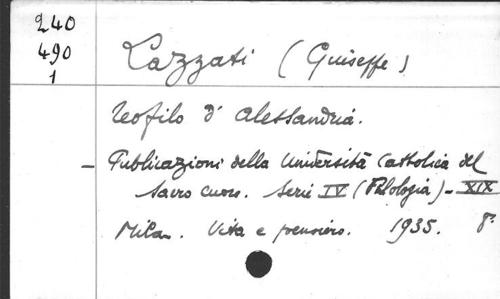 240
490
1
Lazzati (Guiseffe)
Teofilo d'Alessandria.
- Publicazioni della Università Cattholica del
Sacro Cuore. Serie IV (Philologia) - XIX
Milan. Vita e pensiero. 1935. 8°